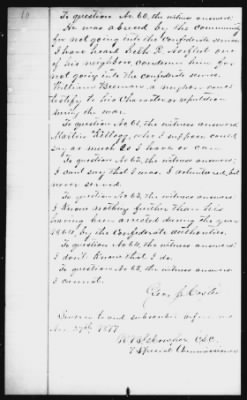 10
To question No. 60, the witness answered:
He was abused by the community
for not going into the Confederate service
I have heard Robb R. Norfleet one
of his neighbors condemn him for
not going into the confederate service.
William Beeman a neighbor could
testify to his character or reputation
during the war.
To question No. 61, the witness answered,
Martin Kellogg, who I suppose could
say as much as I have or can.
To question No. 62, the witness answered;
I can't say that I was. I volunteered, but
never served.
To question No. 63, the witness answered:
I know nothing further than his
having been arrested during the year
1864, by the Confederate authorities.
To question No. 64, the witness answered:
I don't know that I do.
To question No. 65, the witness answered
I cannot.
Geo. J.
Sworn to and subscribed before me
Nov. 27th 1877
Special Commissioner